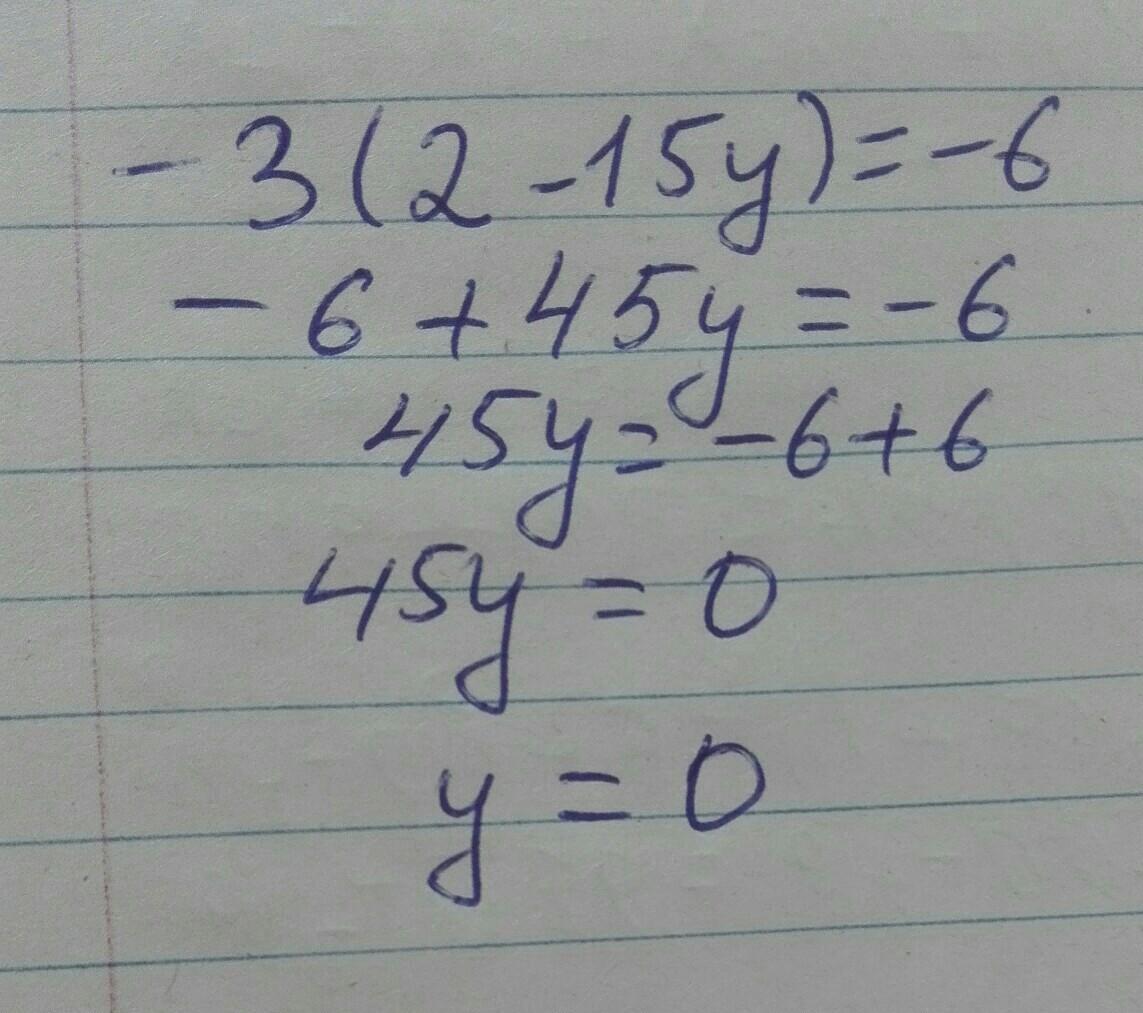 - 3(2 - 15y) = -6
- 6 + 45y = -6
45y = -6 + 6
45y = 0
y = 0